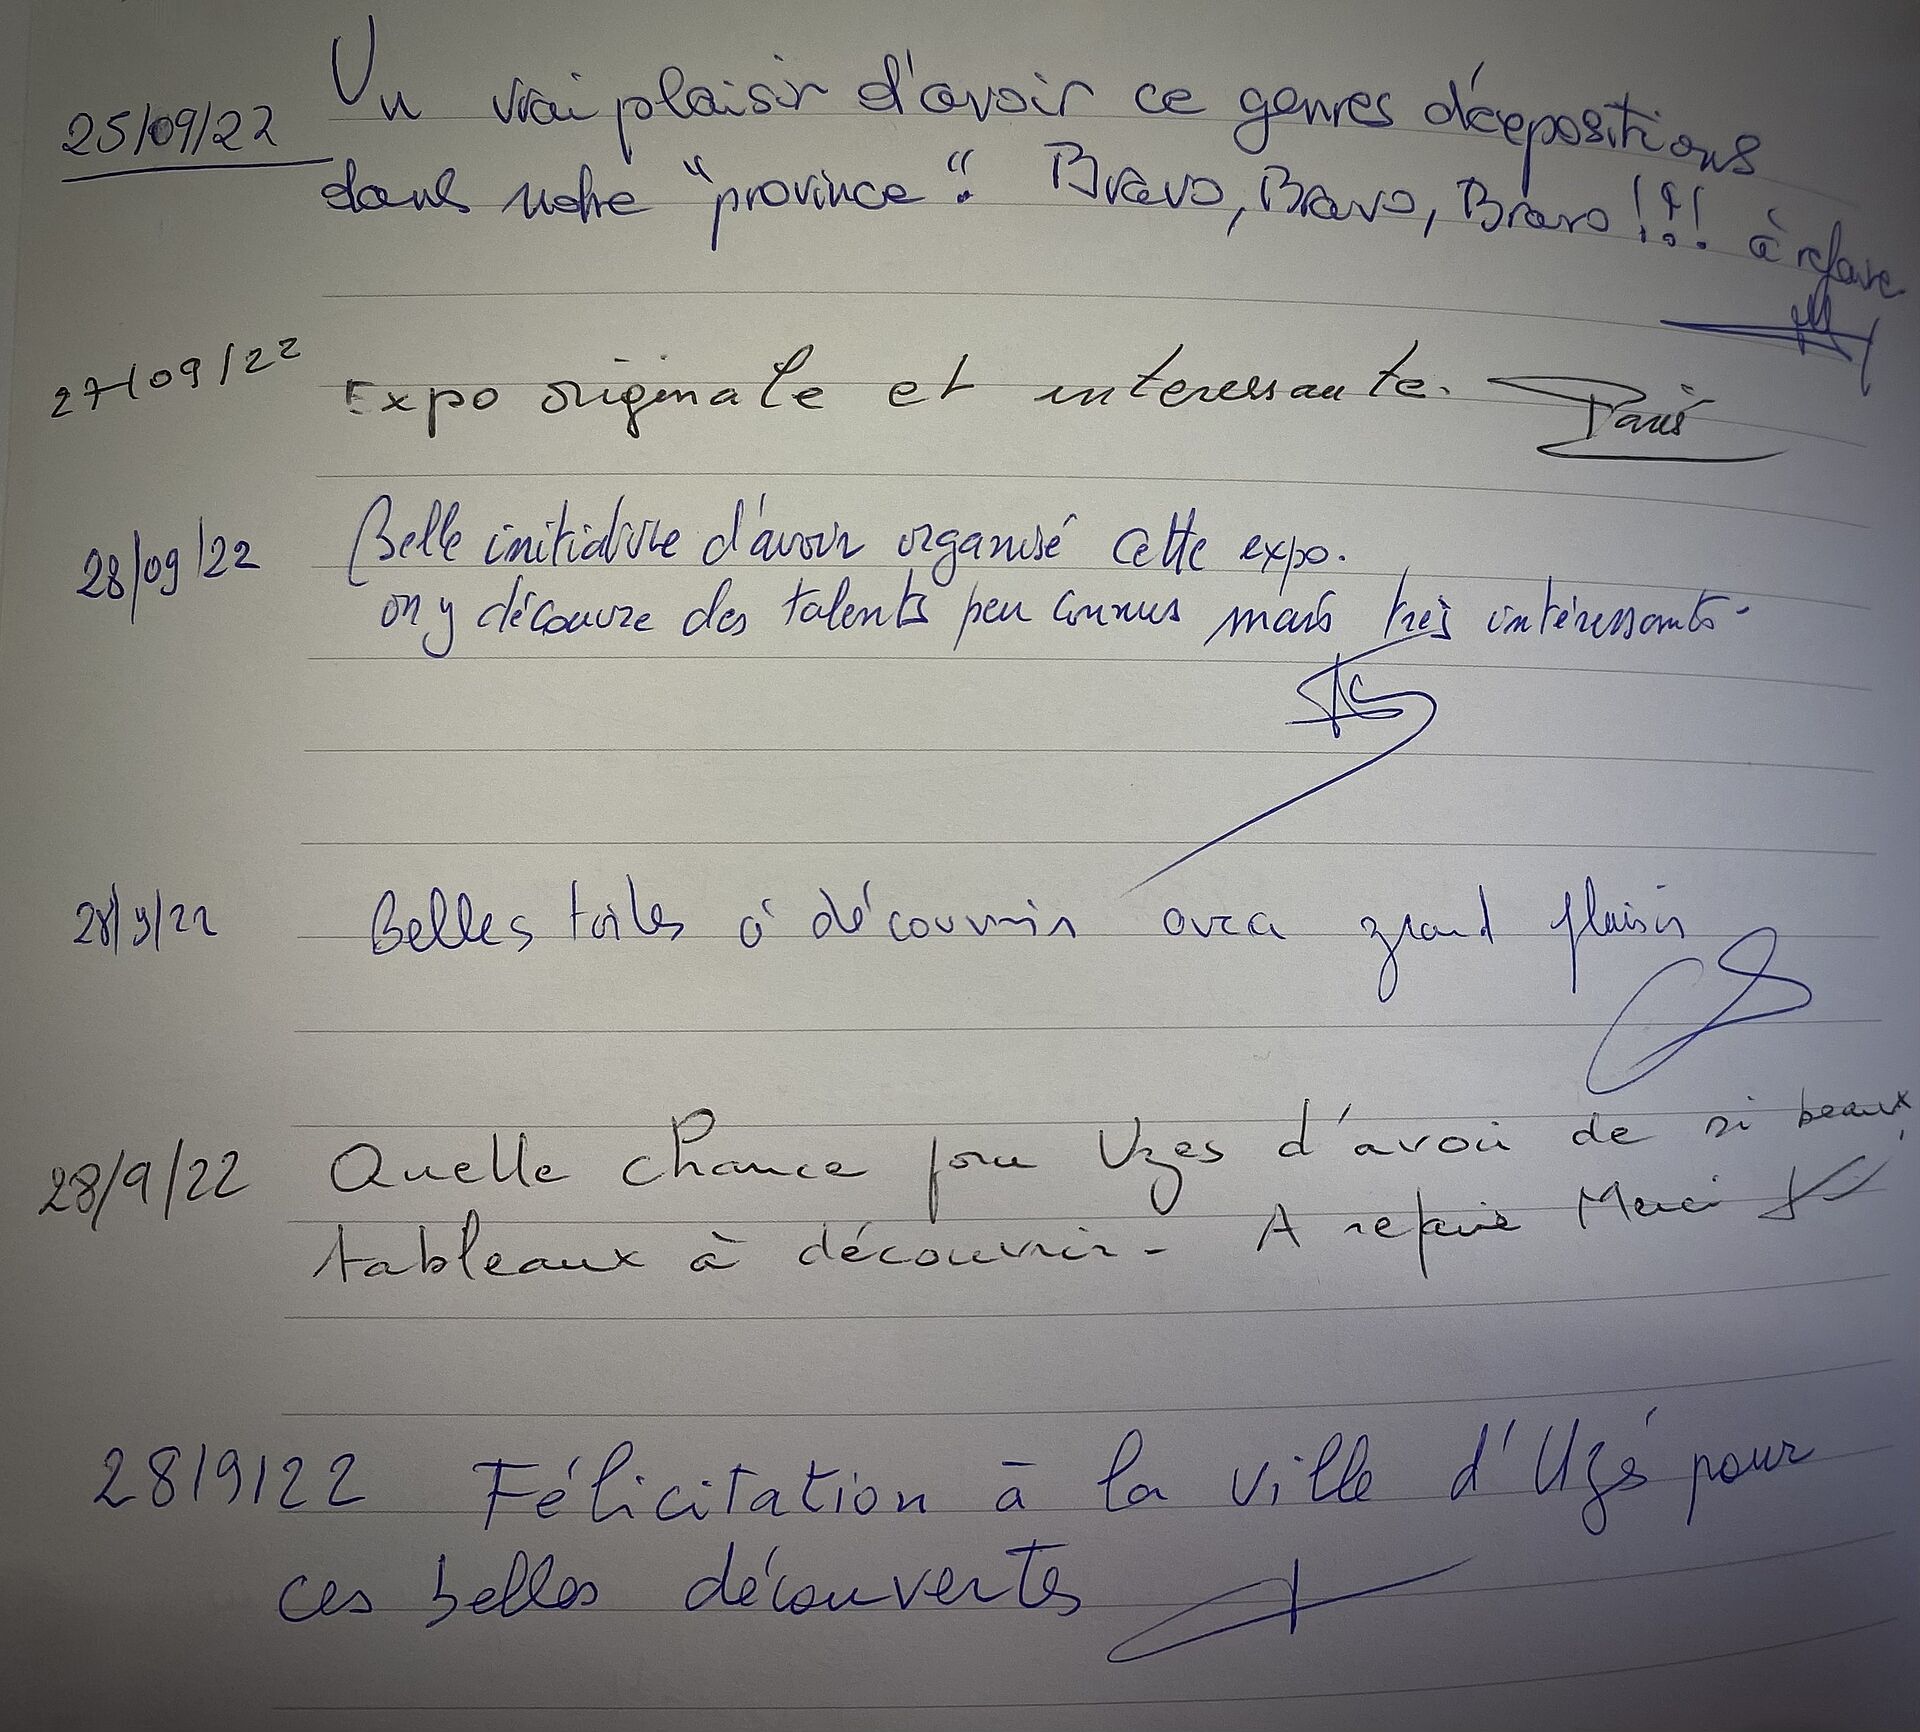 25/09/22 Un vrai plaisir d'avoir ce genres d'éxpositions
dans notre "province". Bravo, Bravo, Bravo !!! à refaire
27/09/22 Expo originale et interessante. Paris
28/09/22 Belle initiative d'avoir organisé cette expo.
on y découvre des talents peu connus mais très intéressants.
28/9/22 Belles toiles à découvrir avec grand plaisir
28/9/22 Quelle chance pour Uzes d'avoir de si beaux
tableaux à découvrir - A refaire Merci
28/9/22 Félicitation à la ville d'Uzés pour
ces belles découvertes